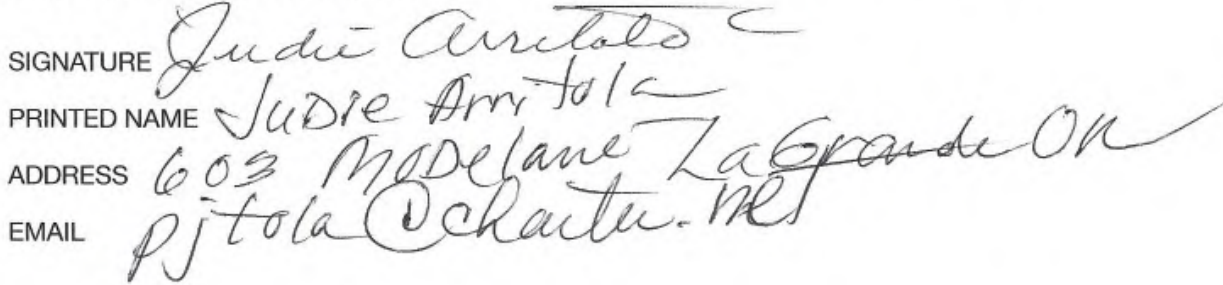 SIGNATURE Judie Arritola
PRINTED NAME Judie Arritola
ADDRESS 603 Modelane LaGrande OR
EMAIL pjtola@charter.net